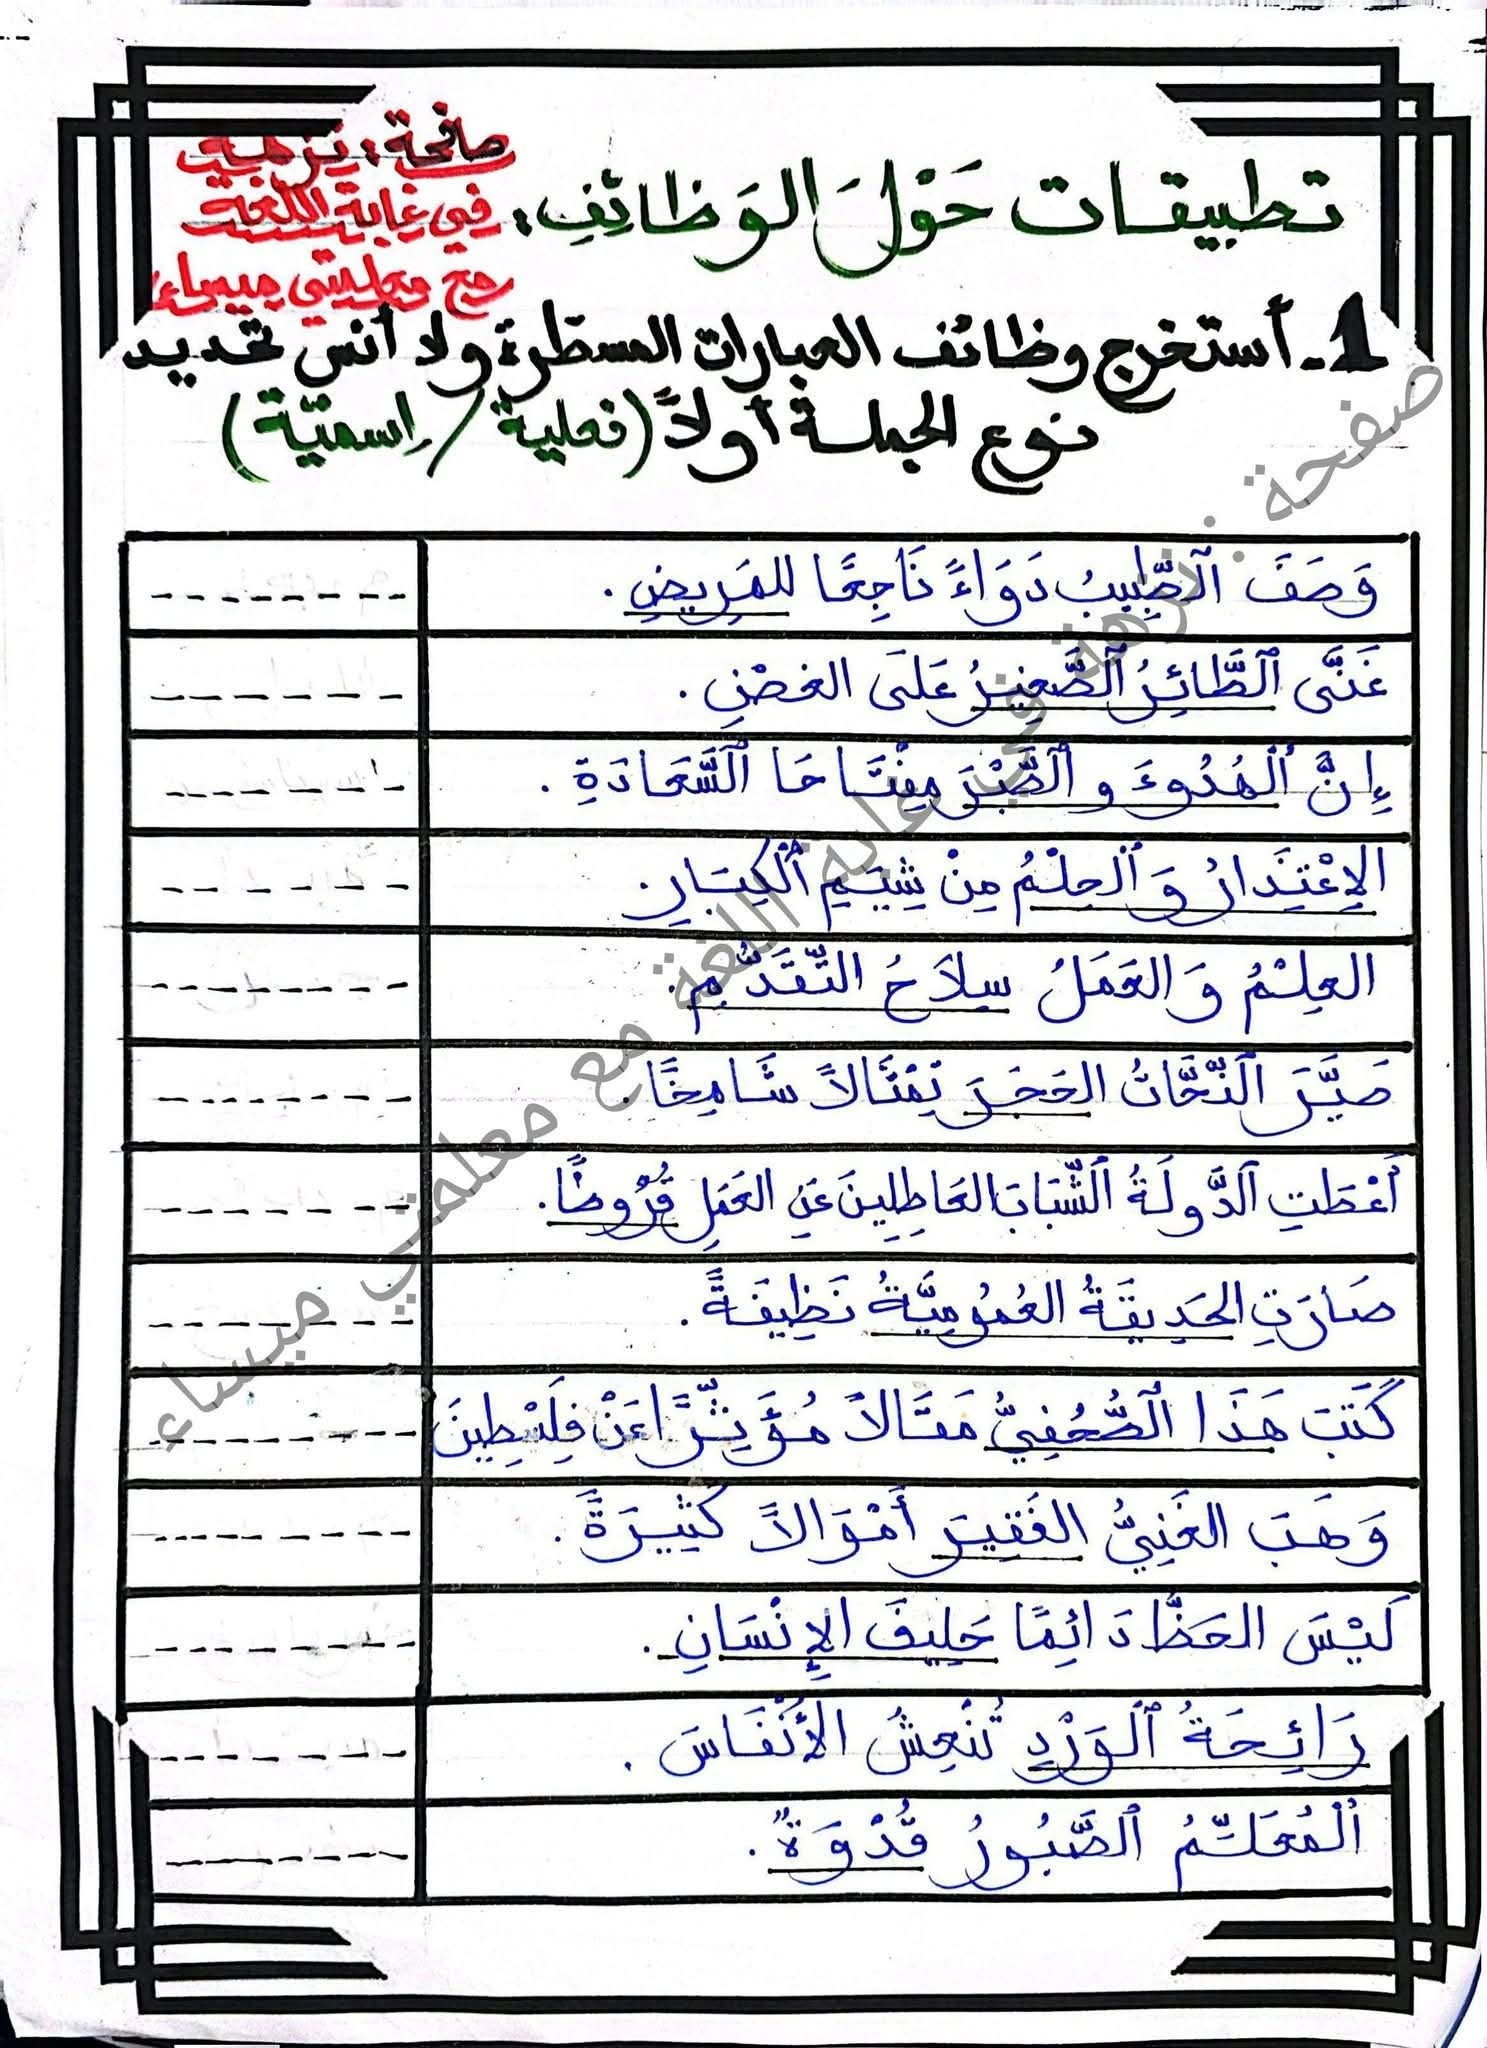 صفحة: نزهة
في غابة اللغة
مع معلمتي ميساء
تطبيقات حَوْلَ الوَظَائِفِ:
1- أستخرج وظائف العبارات المسطّرة ولا أنس تحديد
نوع الجملة أولاً (فعلية / إسميّة)
وَصَفَ ٱلطَّبِيبُ دَوَاءً نَاجِعًا للمَرِيضِ.
غَنَّى ٱلطَّائِرُ ٱلصَّغِيرُ عَلَى الغصْنِ.
إِنَّ ٱلْهُدُوءَ و ٱلصَّبْرَ مِفْتَاحَا ٱلسَّعَادَةِ.
الإِعْتِذَارُ وَ ٱلْحِلْمُ مِنْ شِيَمِ ٱلْكِبَارِ.
العِلْمُ وَ العَمَلُ سِلاَحُ التَّقَدُّمِ.
صَيَّرَ ٱلنَّحَّاتُ الحَجَرَ تِمْثَالاً شَامِخًا.
أَعْطَتِ ٱلدَّولَةُ ٱلشَّبَابَ العَاطِلِينَ عَنِ العَمَلِ قُرُوضًا.
صَارَتِ الحَدِيقَةُ العُمُومِيَّةُ نَظِيفَةً.
كَتَبَ هَذَا ٱلصُّحُفِيُّ مَقَالاً مُؤَثِّرًا عَنْ فِلَسْطِينَ
وَهَبَ الغَنِيُّ الفَقِيرَ أَمْوَالاً كَثِيرَةً.
لَيْسَ الحَظُّ دَائِمًا حَلِيفَ الإِنْسَانِ.
رَائِحَةُ ٱلوَرْدِ تُنْعِشُ الأَنْفَاسَ.
ٱلْمُعَلِّمُ ٱلصَّبُورُ قُدْوَةٌ.
صفحة: نزهة في غابة اللغة مع معلمتي ميساء